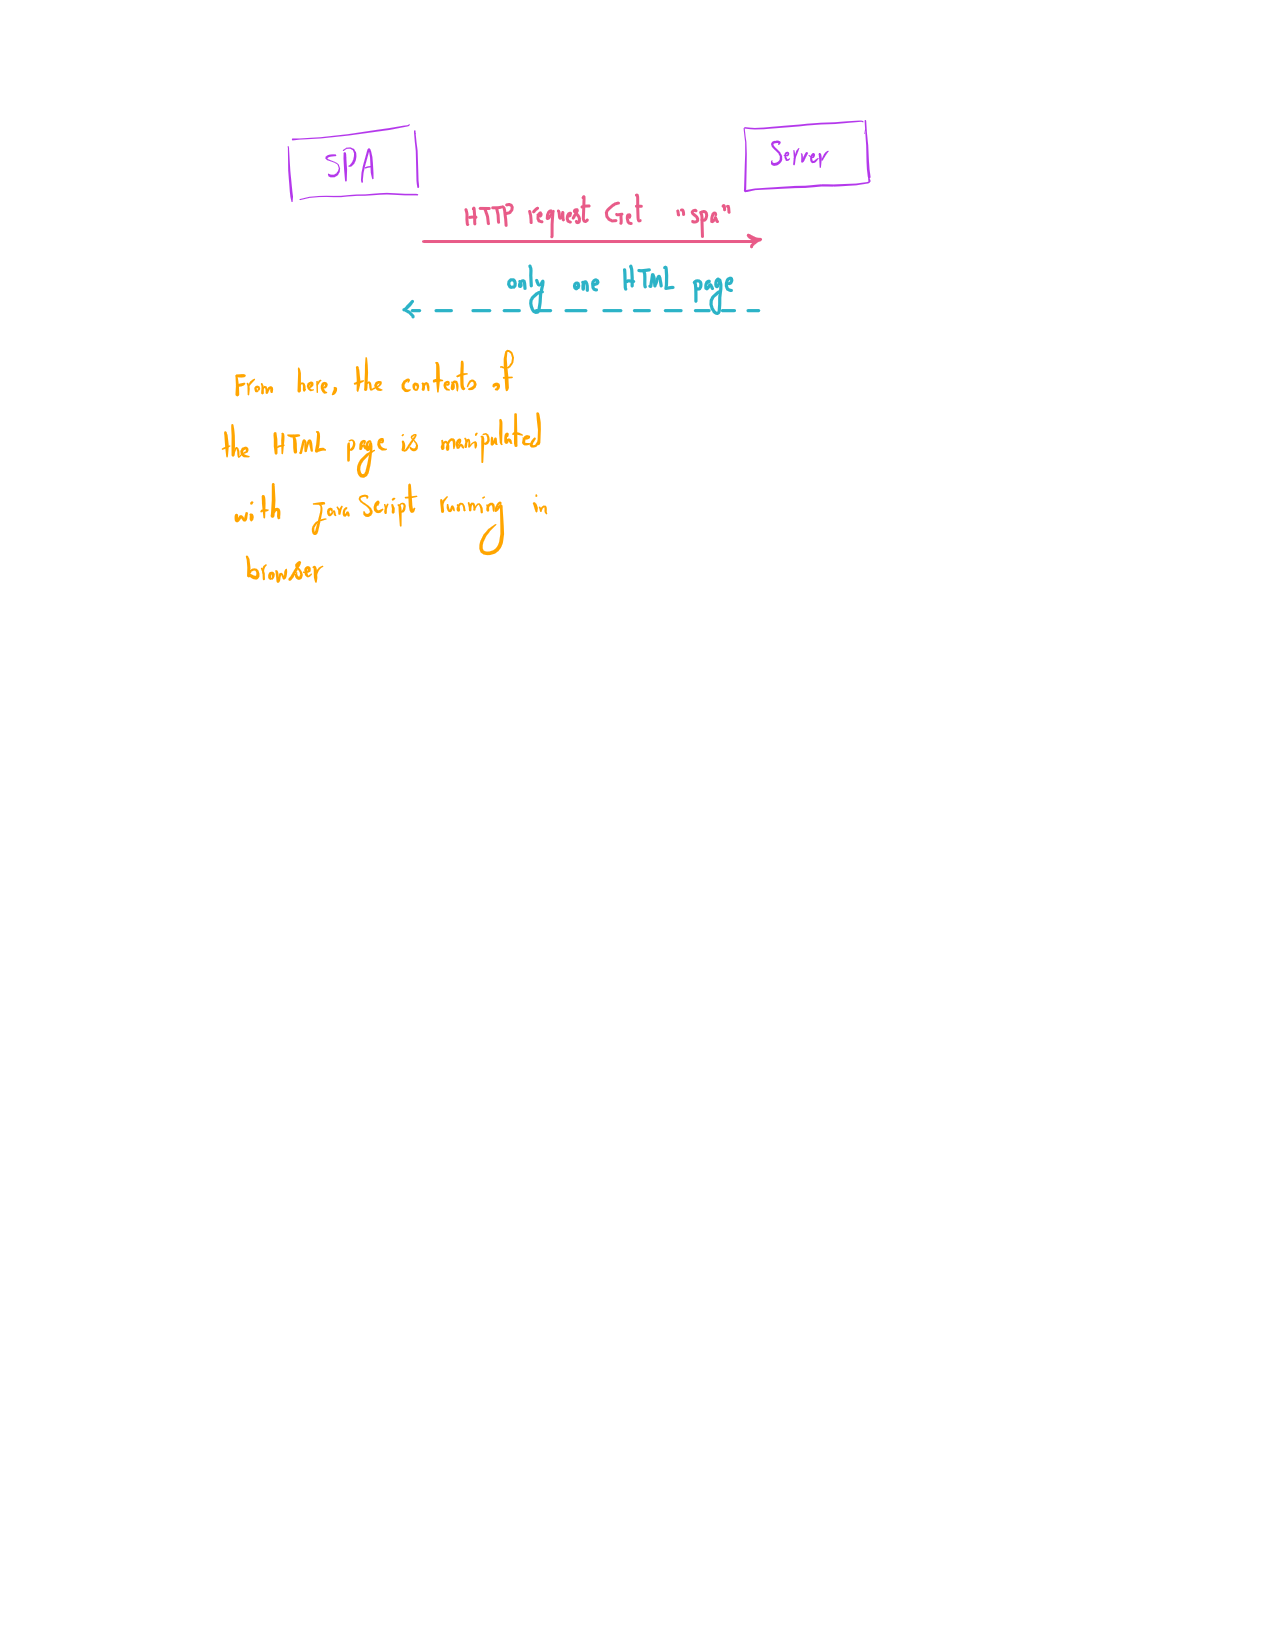 SPA
Server
HTTP request Get "spa"
only one HTML page
From here, the contents of
the HTML page is manipulated
with JavaScript running in
browser